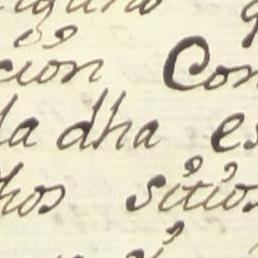 ción Con
la dha es
hos sitios